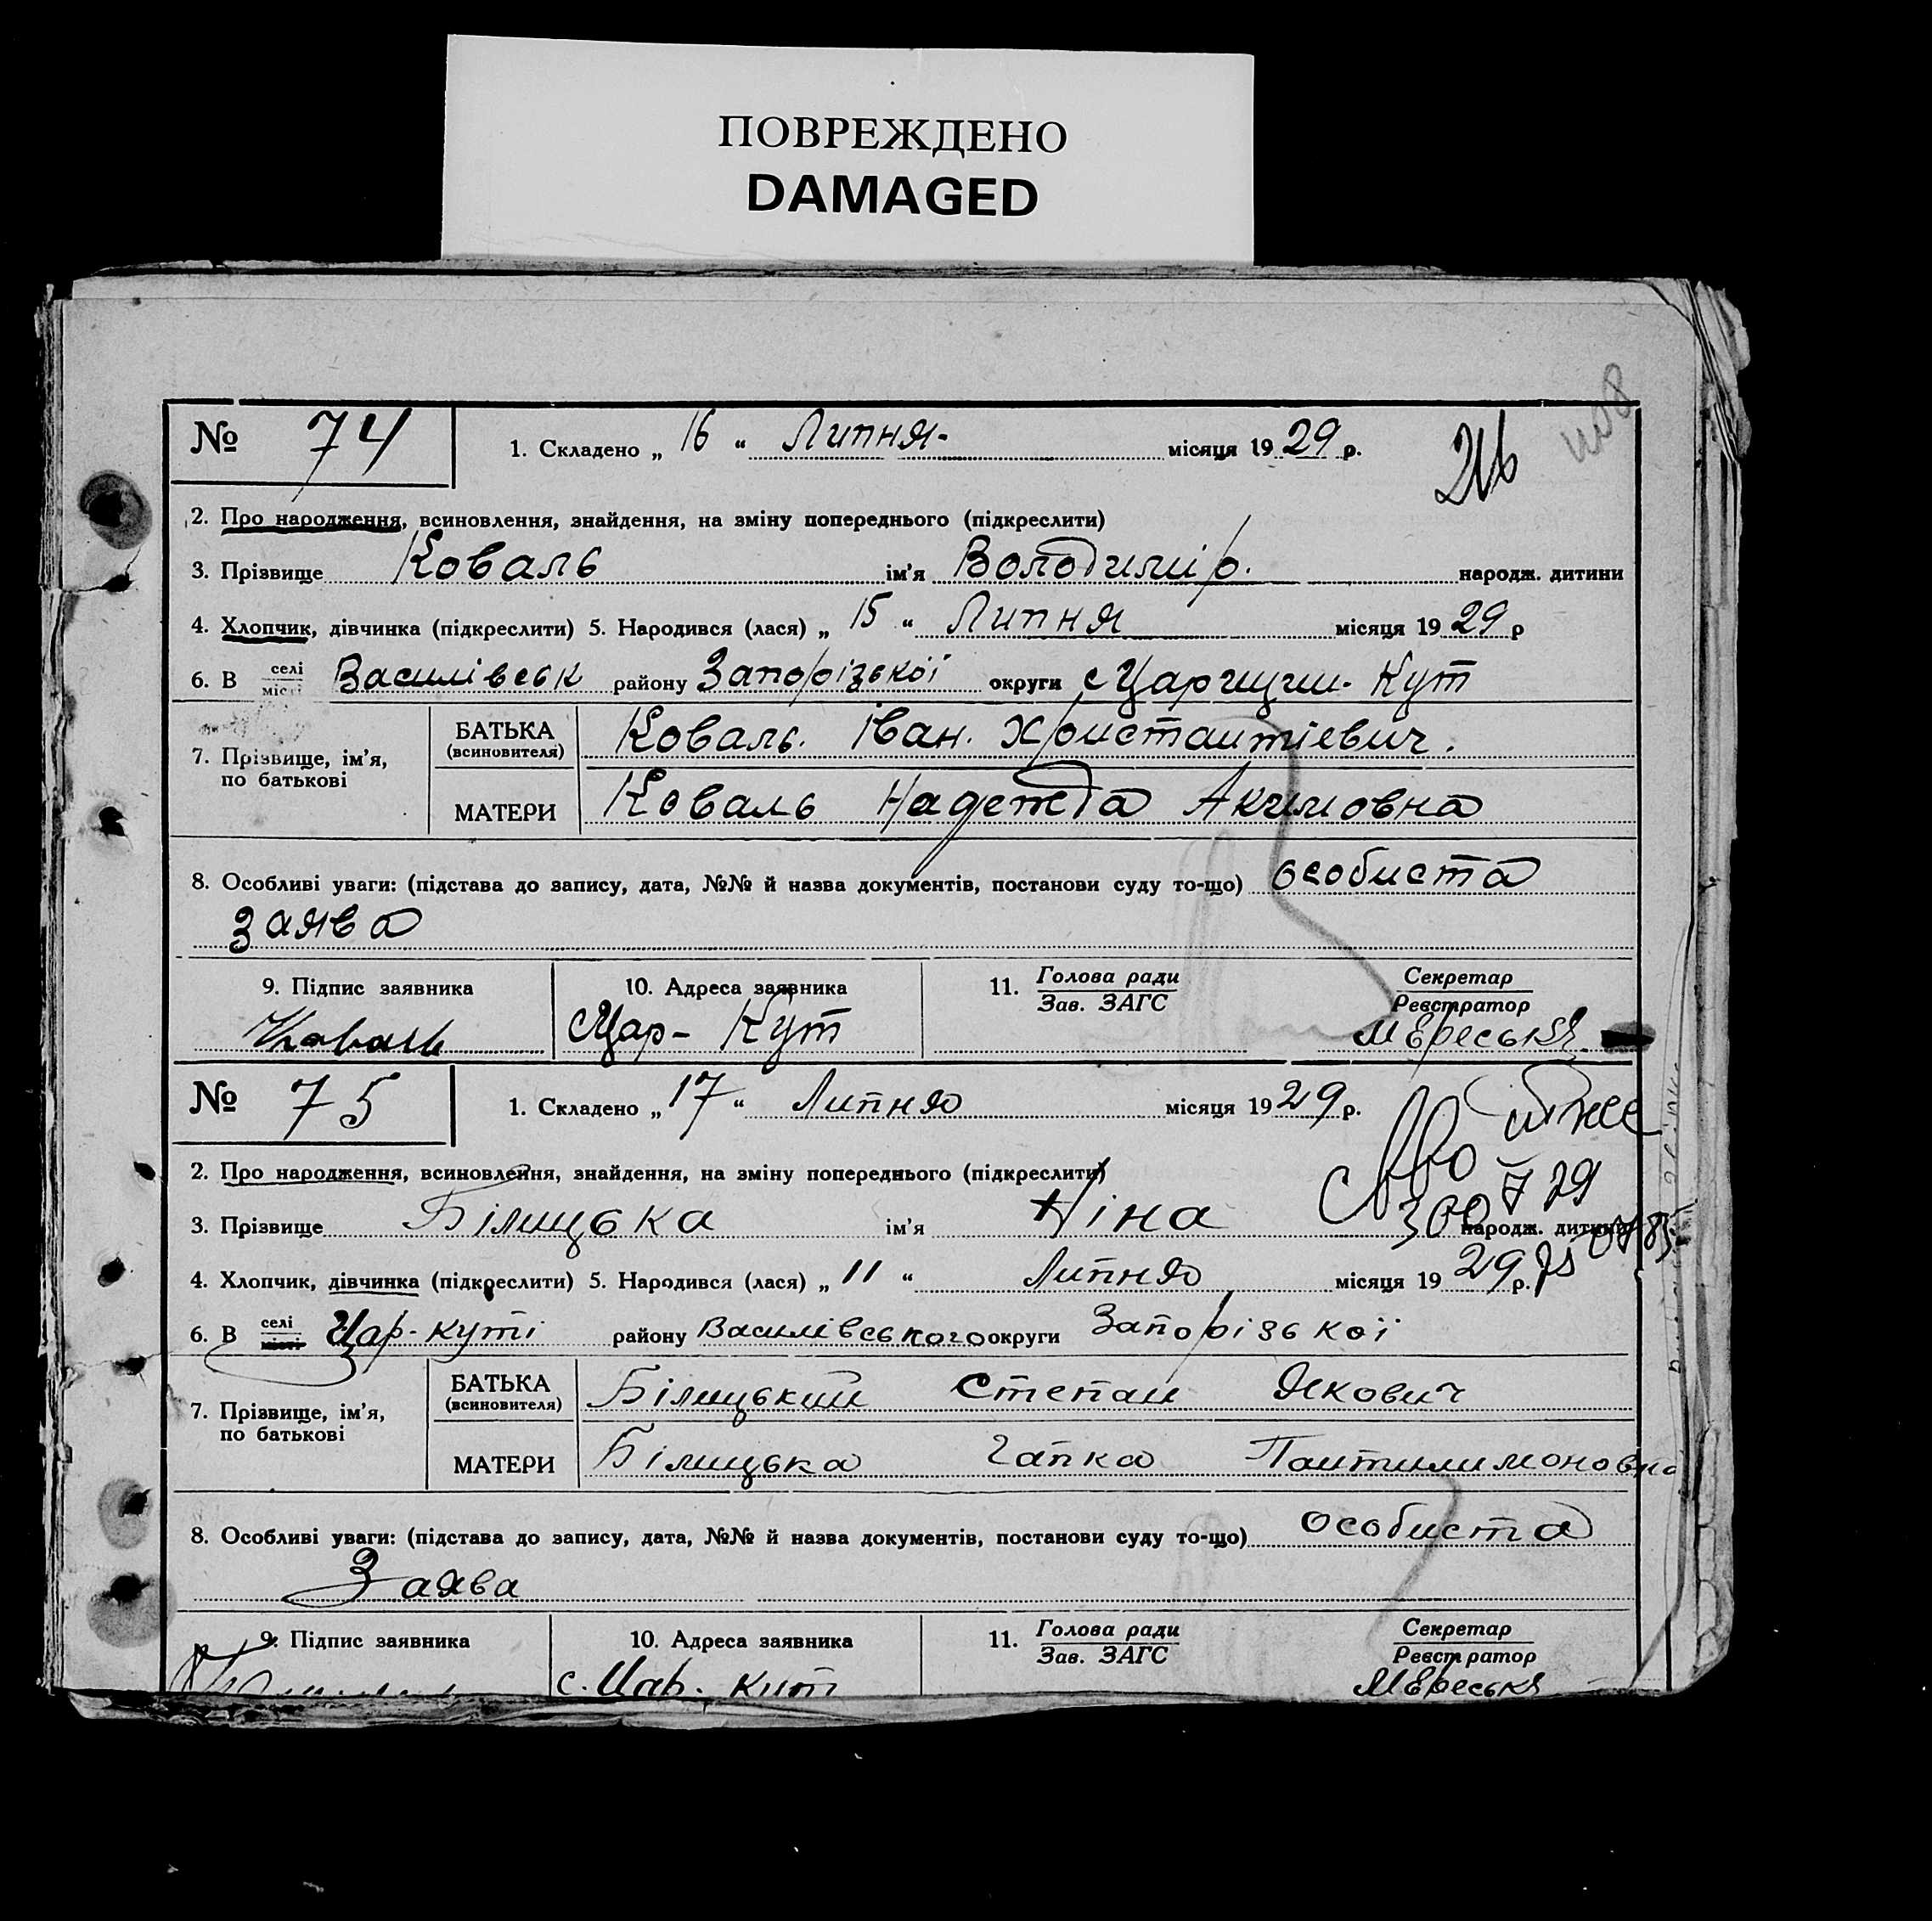 ПОВРЕЖДЕНО
DAMAGED
№ 74
1. Складено „ 16 “ Липня- місяця 1929 р.
2. Про народження, всиновлення, знайдення, на зміну попереднього (підкреслити)
3. Прізвище Коваль ім'я Володимір. народж. дитини
4. Хлопчик, дівчинка (підкреслити) 5. Народився (лася) „ 15 “ Липня місяця 1929 р
6. В селі місті Василівськ району Запорізької округи с Царицин-Кут
7. Прізвище, ім'я, по батькові
БАТЬКА (всиновителя) Коваль. Іван. Христантіевич.
МАТЕРИ Коваль Надежда Акимовна
8. Особливі уваги: (підстава до запису, дата, №№ й назва документів, постанови суду то-що) особиста
заява
9. Підпис заявника
10. Адреса заявника
11. Голова ради
Зав. ЗАГС
Секретар
Реєстратор
Коваль
с Цар- Кут
№ 75
1. Складено „ 17 “ Липня місяця 1929 р.
2. Про народження, всиновлення, знайдення, на зміну попереднього (підкреслити)
3. Прізвище Білицька ім'я Ніна народж. дитини
4. Хлопчик, дівчинка (підкреслити) 5. Народився (лася) „ 11 “ Липня місяця 1929 р.
6. В селі місті Цар-куті району Василівського округи Запорізької
7. Прізвище, ім'я, по батькові
БАТЬКА (всиновителя) Білицький Степан Якович
МАТЕРИ Білицька Гапка Пантилимоновна
8. Особливі уваги: (підстава до запису, дата, №№ й назва документів, постанови суду то-що) особиста
Заява
9. Підпис заявника
10. Адреса заявника
11. Голова ради
Зав. ЗАГС
Секретар
Реєстратор
с. Цар. кут